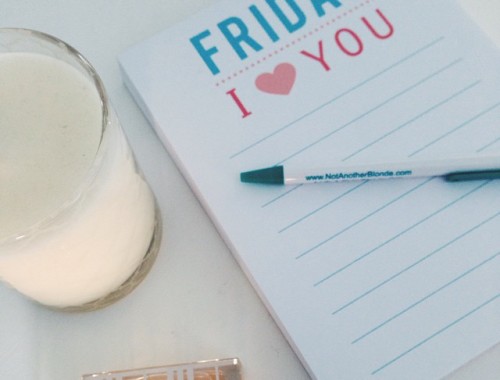 FRIDAY
I ❤ YOU
www.NotAnotherBlonde.com